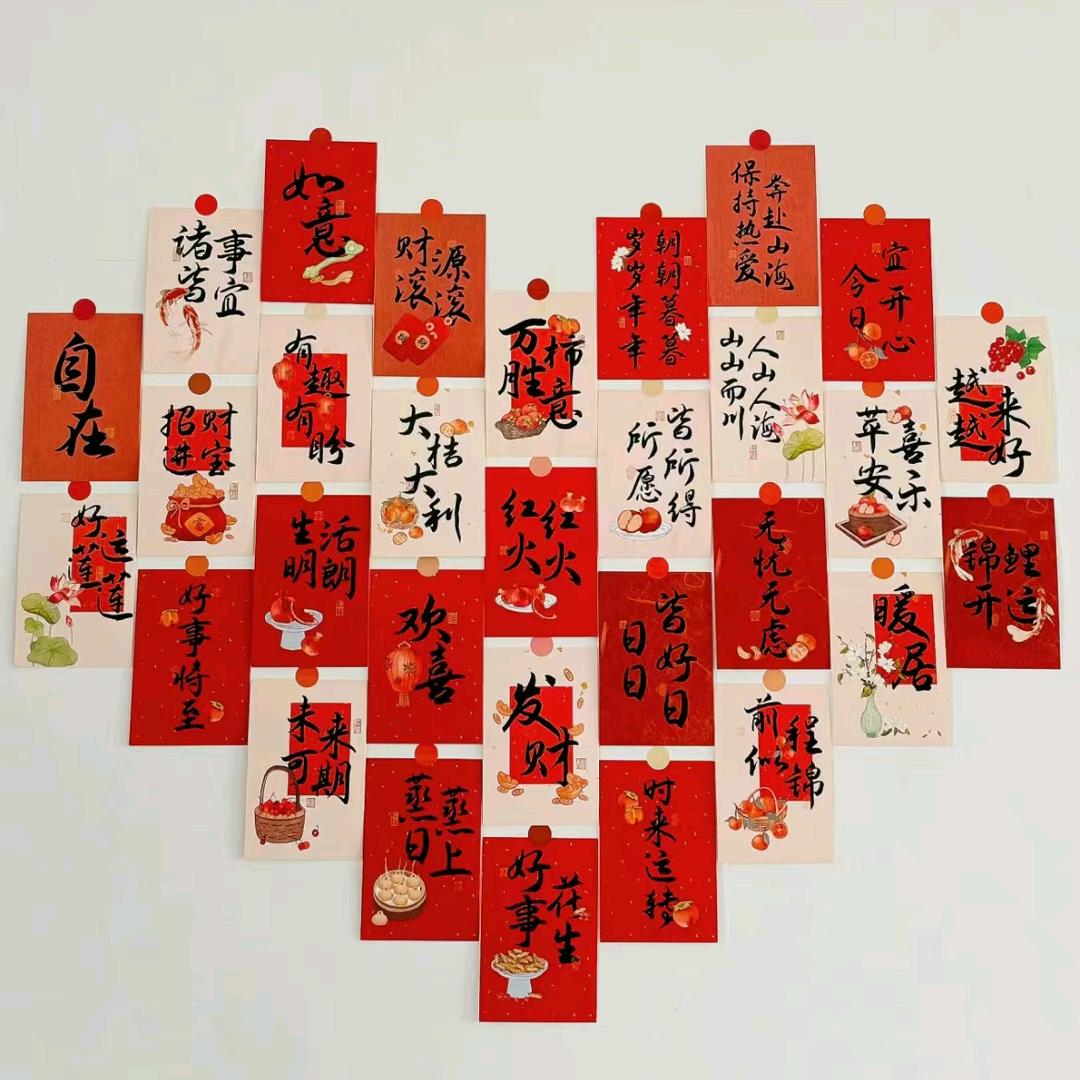 自在
好运莲莲
诸事皆宜
招财进宝
好事将至
如意
有趣有盼
生活明朗
未来可期
财源滚滚
大桔大利
欢喜
蒸蒸日上
万柿胜意
红红火火
发财
好事花生
朝朝暮暮
岁岁年年
所愿
皆所得
日日
皆好日
时来运转
保持热爱
奔赴山海
人山人海
山山而川
无忧无虑
前程似锦
今日
宜开心
苹安
喜乐
暖居
越来越好
锦鲤开运